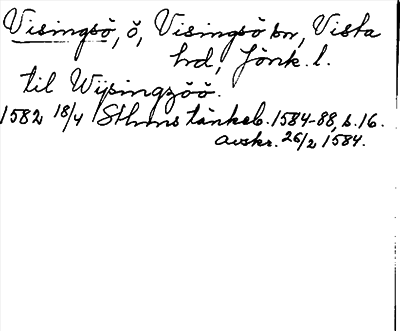 Visingsö, ö, Visingsö sn, Vista
hd, Jönk. l.
til Wijsingzöö.
1582 18/4 Sthms tänkeb. 1584-88, s. 16.
avskr. 26/2 1584.